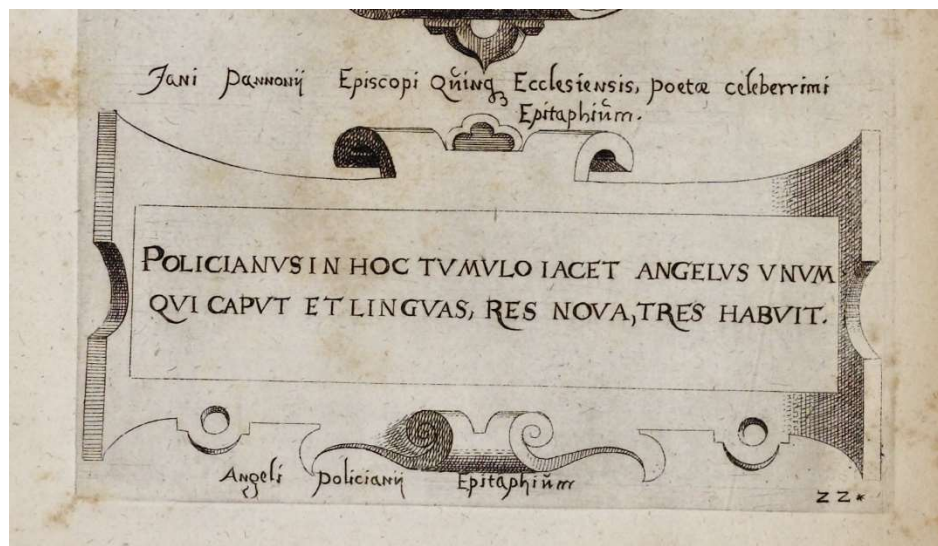 Jani Pannonij Episcopi Quinqꝫ Ecclesiensis, poetæ celeberrimi
Epitaphiŭm.
POLICIANVS IN HOC TVMVLO IACET ANGELVS VNVM
QVI CAPVT ET LINGVAS, RES NOVA, TRES HABVIT.
Angeli Policianij Epitaphiŭm
ZZ*